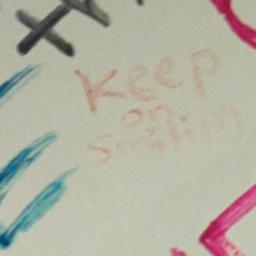 Keep
on
smiling